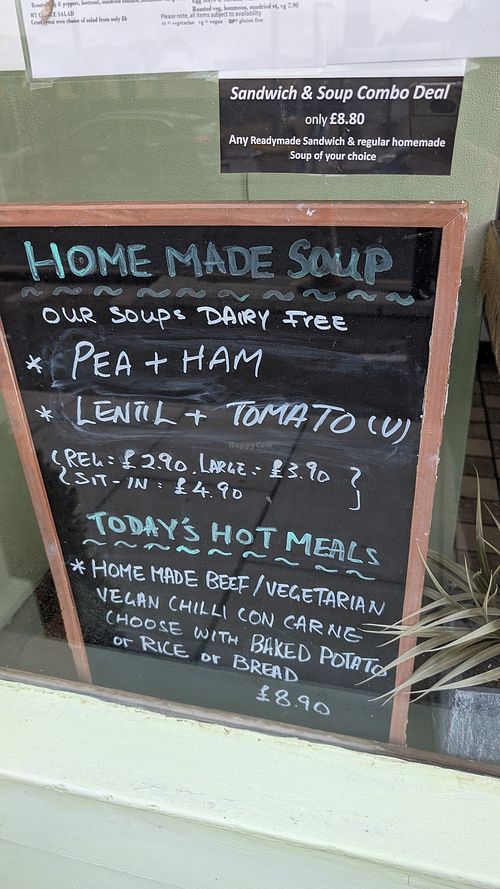 Roasted veg, houmous, sundried vt, vg 7.90
Create your own choice of salad from only £6
Please note, all items subject to availability
vt = vegetarian vg = vegan GF= gluten free
Sandwich & Soup Combo Deal
only £8.80
Any Readymade Sandwich & regular homemade
Soup of your choice
HOME MADE SOUP
OUR SOUPS DAIRY FREE
* PEA + HAM
* LENTIL + TOMATO (V)
HappyCow
(REG = £2.90. LARGE = £3.90)
(SIT-IN : £4.90)
TODAY'S HOT MEALS
* HOME MADE BEEF/VEGETARIAN
VEGAN CHILLI CON CARNE
CHOOSE WITH BAKED POTATO
or RICE or BREAD
£8.90